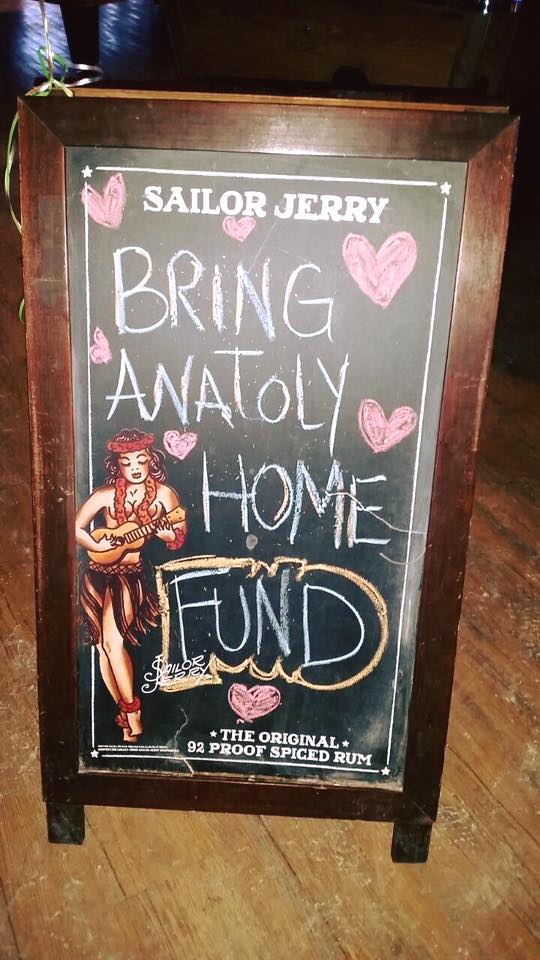 SAILOR JERRY
BRING
ANATOLY
HOME
FUND
SAILOR
JERRY
THE ORIGINAL
92 PROOF SPICED RUM